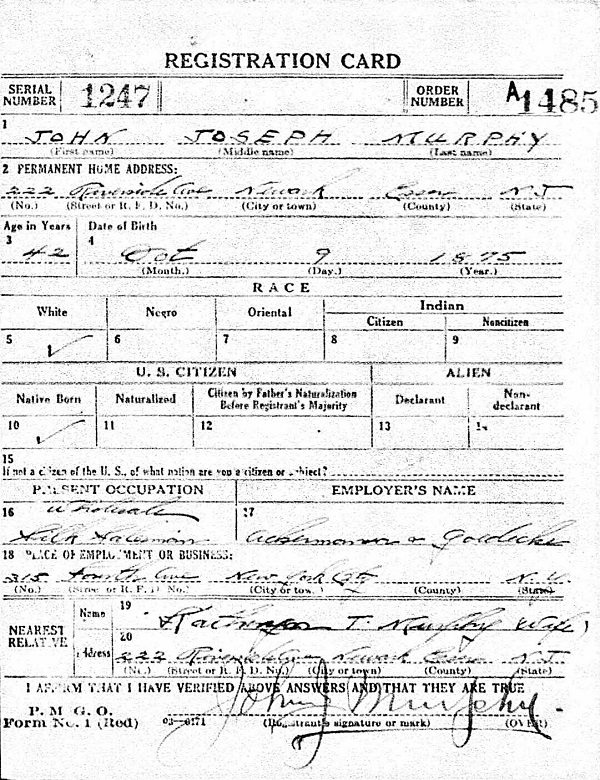 REGISTRATION CARD
SERIAL NUMBER 1247 ORDER NUMBER A1485
1 JOHN JOSEPH MURPHY
(First name) (Middle name) (Last name)
2 PERMANENT HOME ADDRESS:
222 Riverside Ave Newark Essex N.J.
(No.) (Street or R. F. D. No.) (City or town) (County) (State)
Age in Years Date of Birth
3 42 4 Oct 9 1875
(Month.) (Day.) (Year.)
RACE
White Negro Oriental Indian
Citizen Noncitizen
5 ✓ 6 7 8 9
U. S. CITIZEN ALIEN
Native Born Naturalized Citizen by Father's Naturalization Before Registrant's Majority Declarant Non-declarant
10 ✓ 11 12 13 14
15
If not a citizen of the U. S., of what nation are you a citizen or subject?
PRESENT OCCUPATION EMPLOYER'S NAME
16 Wholesale 17
Silk Salesman &
18 PLACE OF EMPLOYMENT OR BUSINESS:
315 Fourth Ave New York City N.Y.
(No.) (Street or R. F. D. No.) (City or town) (County) (State)
NEAREST RELATIVE
Name 19 T. Murphy (Wife)
20
Address 222 Riverside Ave Newark Essex N.J.
(No.) (Street or R. F. D. No.) (City or town) (County) (State)
I AFFIRM THAT I HAVE VERIFIED ABOVE ANSWERS AND THAT THEY ARE TRUE
P. M. G. O.
Form No. 1 (Red) 03—6171 John J Murphy
(Registrant's signature or mark) (OVER)